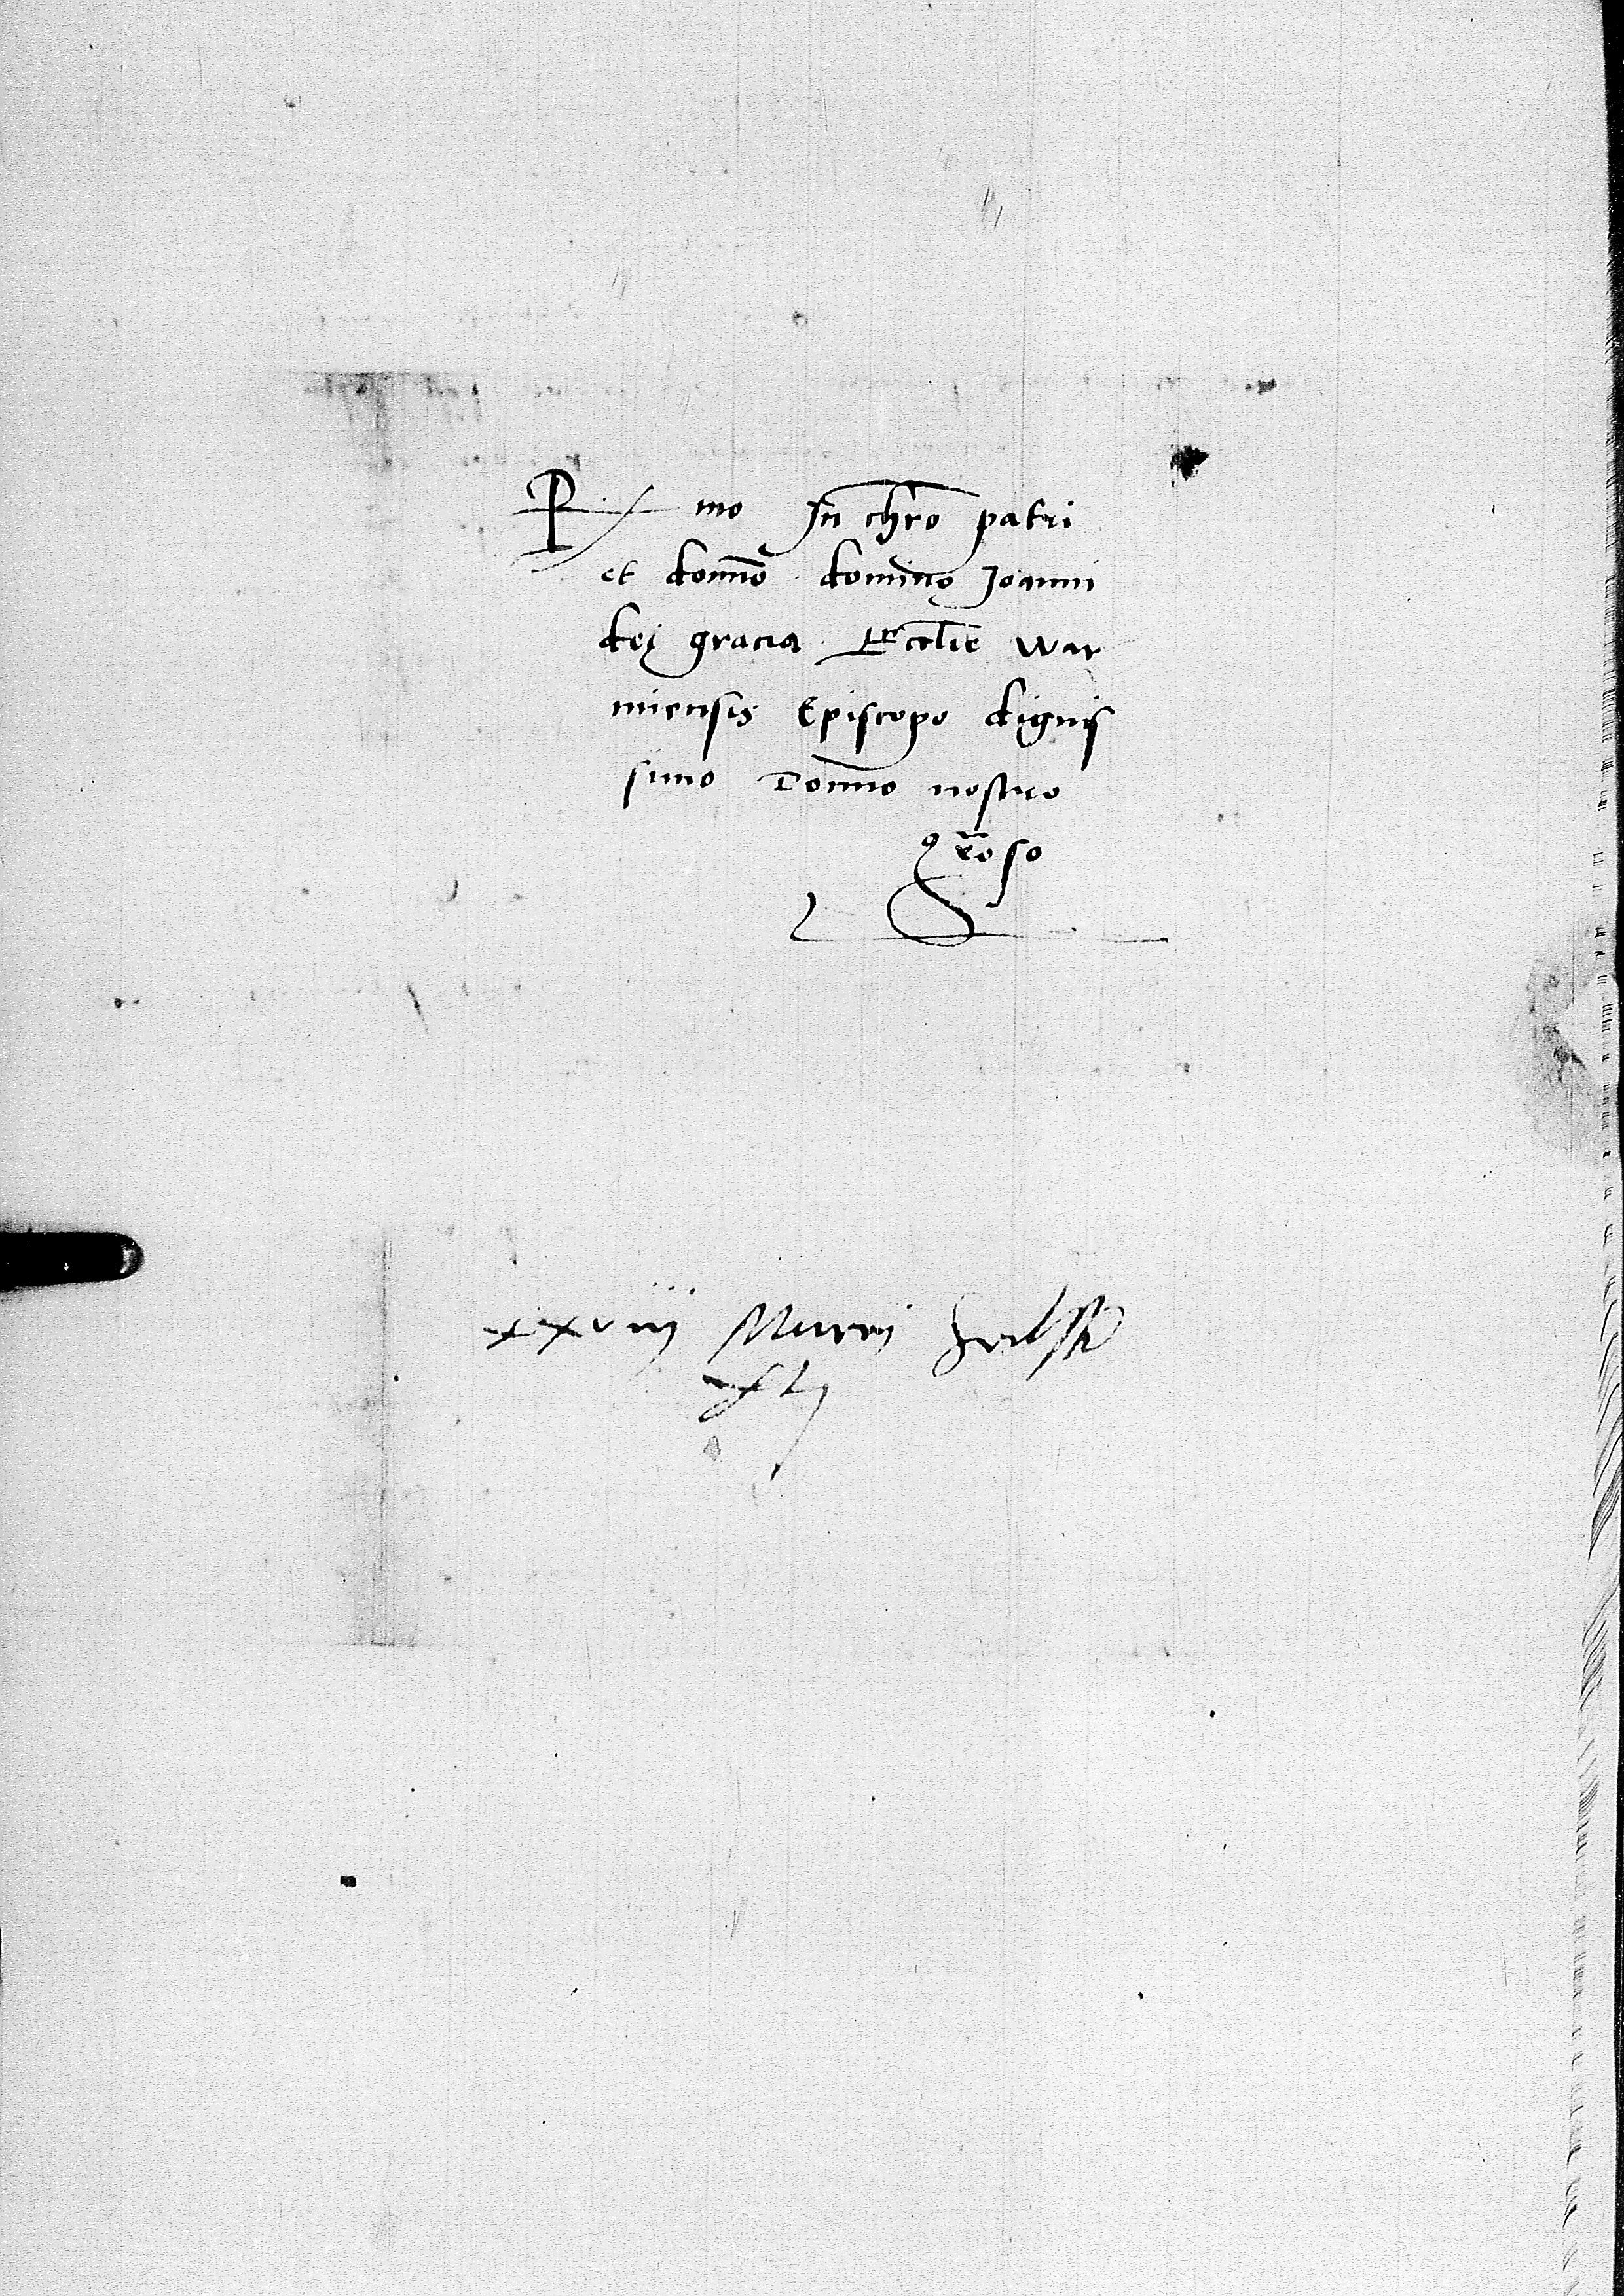 R mo In chro patri
et domno domino Joanni
dej gracia Ecclie War
miensis Episcopo dignis
simo Domno nostro
groso
xxviij Marcij